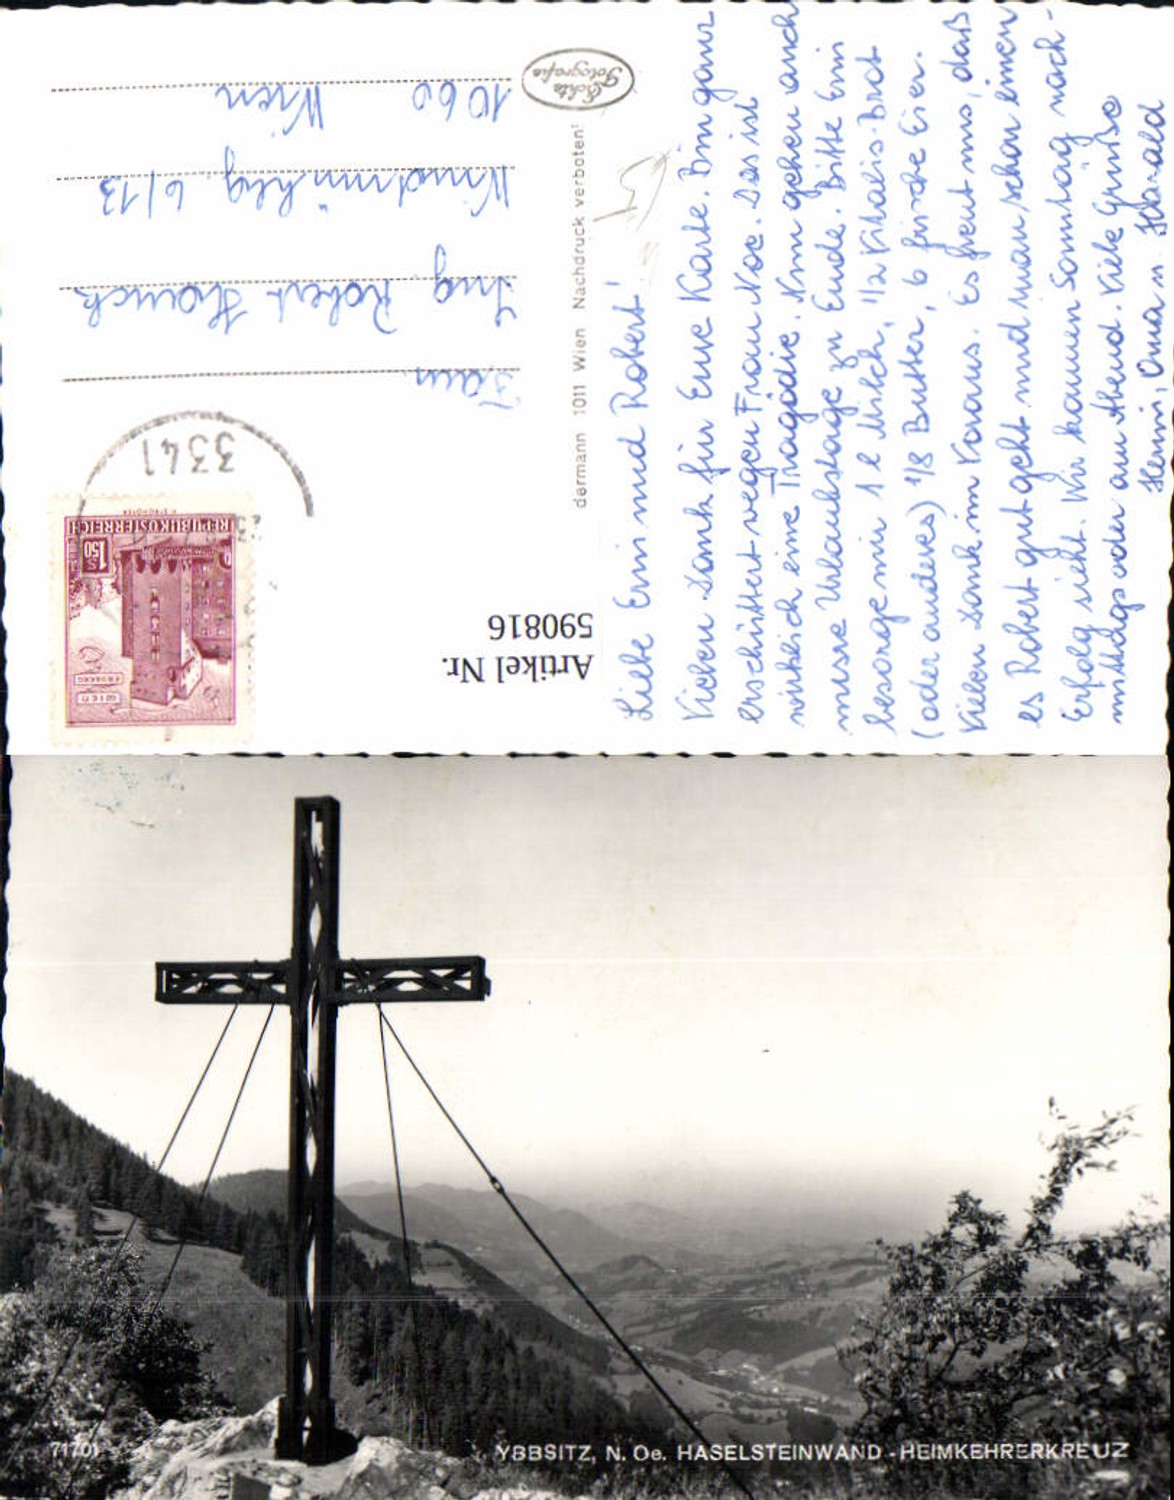 Liebe Erni und Robert!
Vielen Dank für Eure Karte. Bin ganz
erschüttert wegen Frau Noe. Das ist
wirklich eine Tragödie. Nun gehen auch
unsre Urlaubstage zu Ende. Bitte Erni
besorge mir 1 l Milch, 1/2 Vitalis-Brot
(oder anderes) 1/8 Butter, 6 frische Eier.
Vielen Dank im Voraus. Es freut uns, daß
es Robert gut geht und man schon einen
Erfolg sieht. Wir kommen Sonntag nach-
mittags oder am Abend. Viele Grüße
Henni, Oma u.
Echte
Fotografie
dermann 1011 Wien Nachdruck verboten!
3341
REPUBLIK ÖSTERREICH
S
1.50
WIEN
ERDBERG
Fam.
Ing. Robert
Windmühlg. 6/13
1060 Wien
Artikel Nr.
590816
71701
YBBSITZ, N. Oe. HASELSTEINWAND - HEIMKEHRERKREUZ